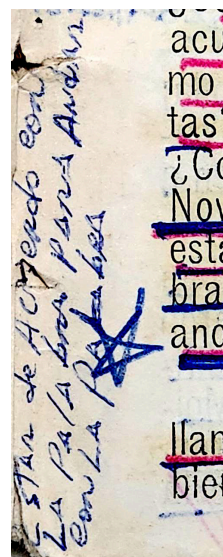 Estar de Acuerdo con
La Palabra Para Andar
con La Palabra
acu
mo
tas
¿Co
Nov
esta
bra
and
llan
biet